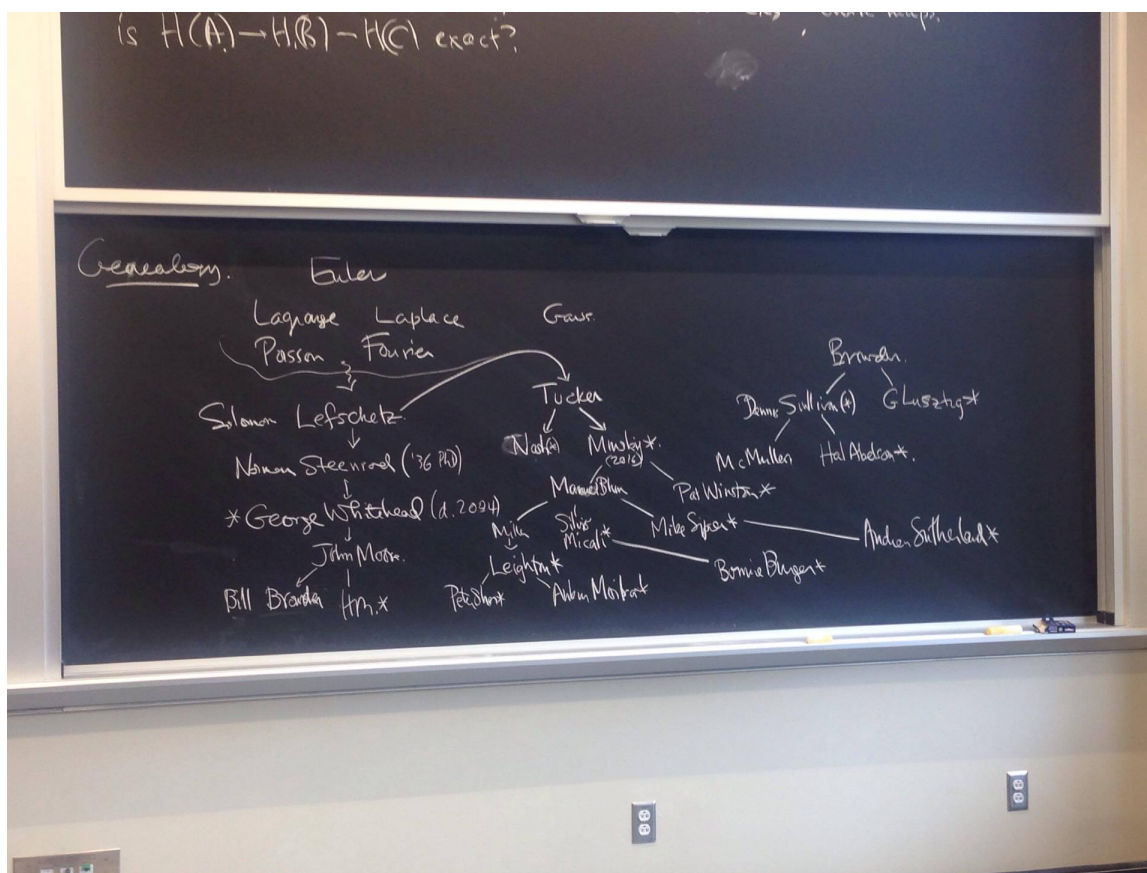 is H(A) → H(B) – H(C) exact?
Genealogy.
Euler
Lagrange Laplace Gauss.
Poisson Fourier
Solomon Lefschetz
Norman Steenrod ('36 PhD)
*George Whitehead (d. 2004)
John Moore.
Bill Browder HM.*
Tucker
Nash(*) Minsky*.
(2016)
Manuel Blum Pat Winston*
Miller Silvio Micali* Mike Sipser* Andrew Sutherland*
Leighton* Bonnie Berger*
Peter Shor* Ankur Moitra*
Browder.
Dennis Sullivan(*) G Lusztig*
McMullen Hal Abelson*.